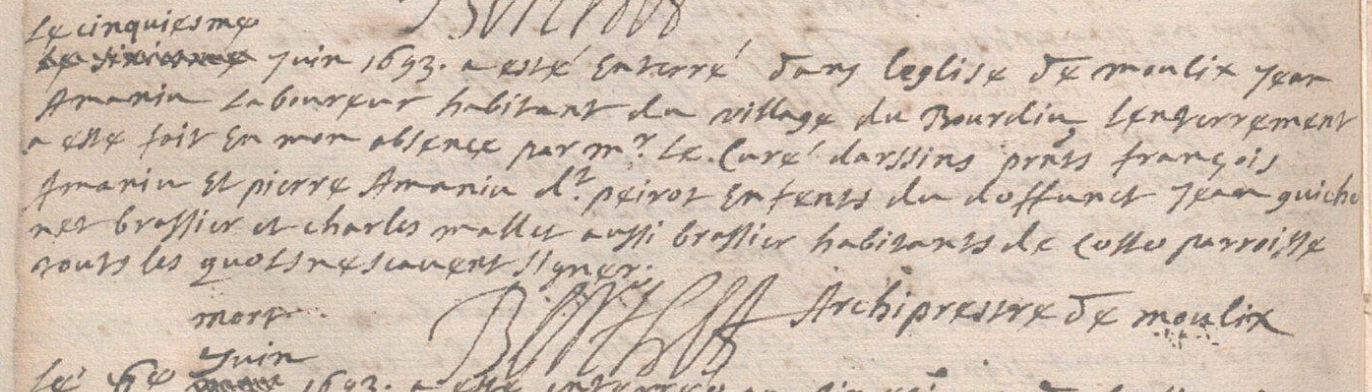 Le cinquiesme
Juin 1693. a esté Enterré dans leglise de moulix Jean
Amaniu Laboureur habitant du village du Bourdiu, Lenterrement
a este fait En mon absence par mr. Le. Curé darssins pnts françois
Amaniu Et pierre Amaniu dt. peirot Enfents du deffunct Jean guicho
net brassier et charles mallet aussi brassier habitants de cette parroisse
touts les quels ne scavent signer.
Archiprestre de moulix
mort
Juin
Le 1693. a este enterré